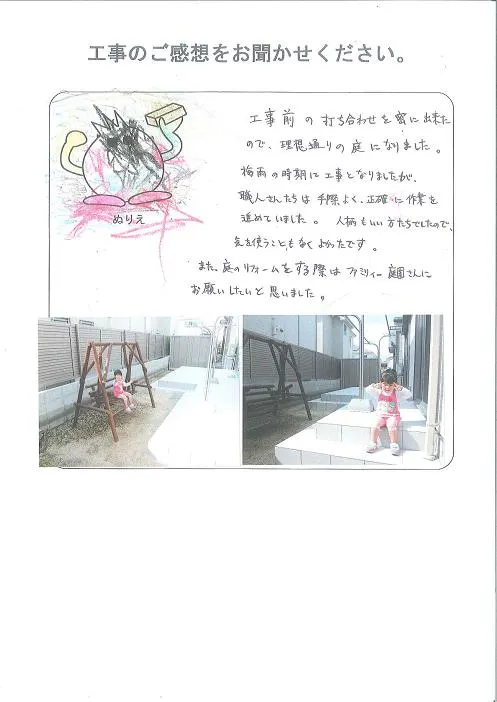 工事のご感想をお聞かせください。
工事前の打ち合わせを密に出来た
ので、理想通りの庭になりました。
梅雨の時期に工事となりましたが、
職人さんたちは手際よく、正確に作業を
進めていました。人柄もいい方たちでしたので、
気を使うこともなくよかったです。
また、庭のリフォームをする際はファミリー庭園さんに
お願いしたいと思いました。
ぬりえ